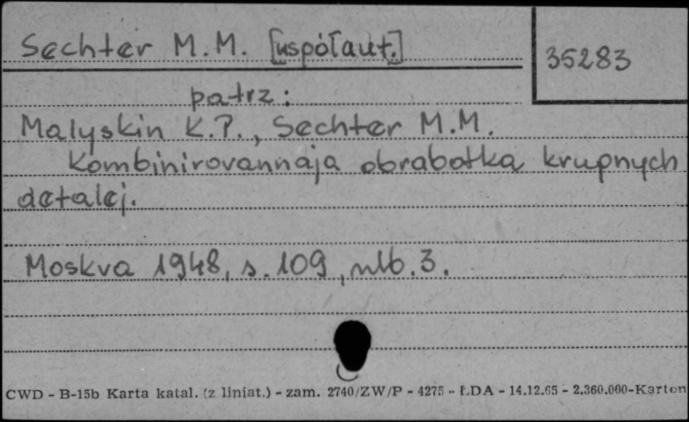 Sechter M.M. [współaut.]
35283
patrz:
Malyskin K.P., Sechter M.M.
Kombinirovannaja obrabotka krupnych
detalej.
Moskva 1948, s. 109, nlb. 3.
CWD - B-15b Karta katal. (z liniat.) - zam. 2740/ZW/P - 4275 - ŁDA - 14.12.65 - 2.360.000-Karton